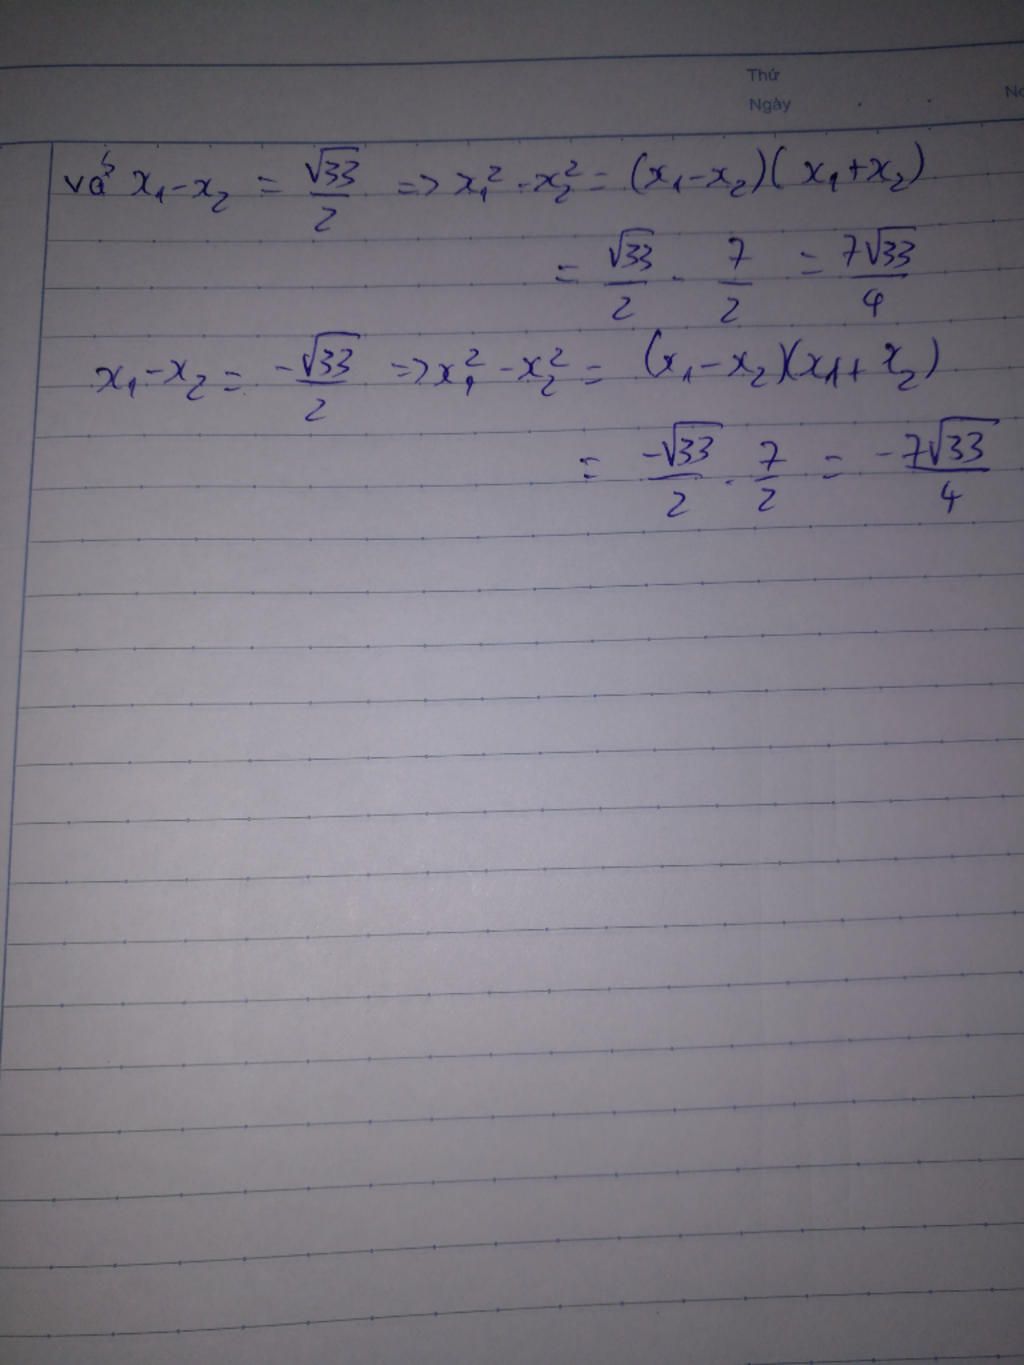 Thứ
Ngày
với x₁ - x₂ = √33/2 => x₁² - x₂² = (x₁ - x₂)(x₁ + x₂)
= √33/2 . 7/2 = 7√33/4
x₁ - x₂ = -√33/2 => x₁² - x₂² = (x₁ - x₂)(x₁ + x₂)
= -√33/2 . 7/2 = -7√33/4